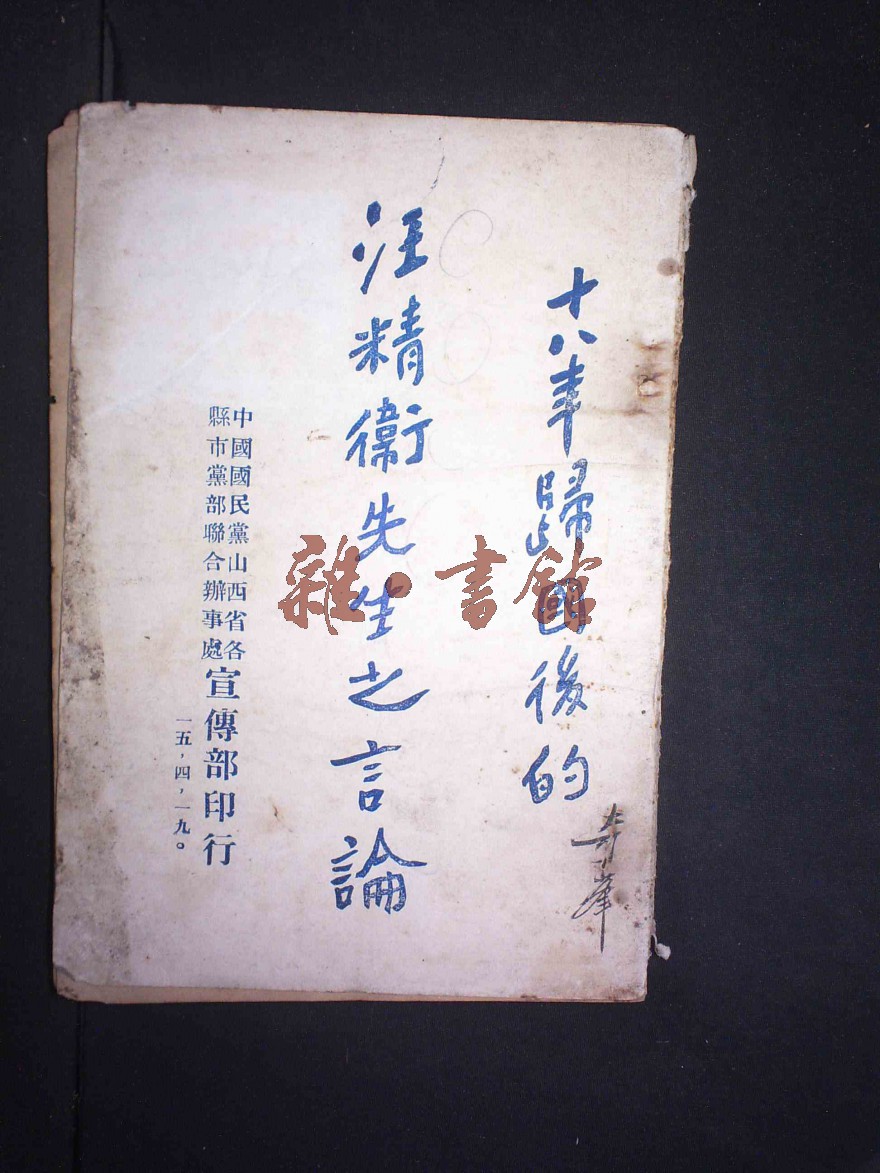 十八年歸國後的
汪精衛先生之言論
中國國民黨山西省各
縣市黨部聯合辦事處
宣傳部印行
一五，四，一九。
雜·書館